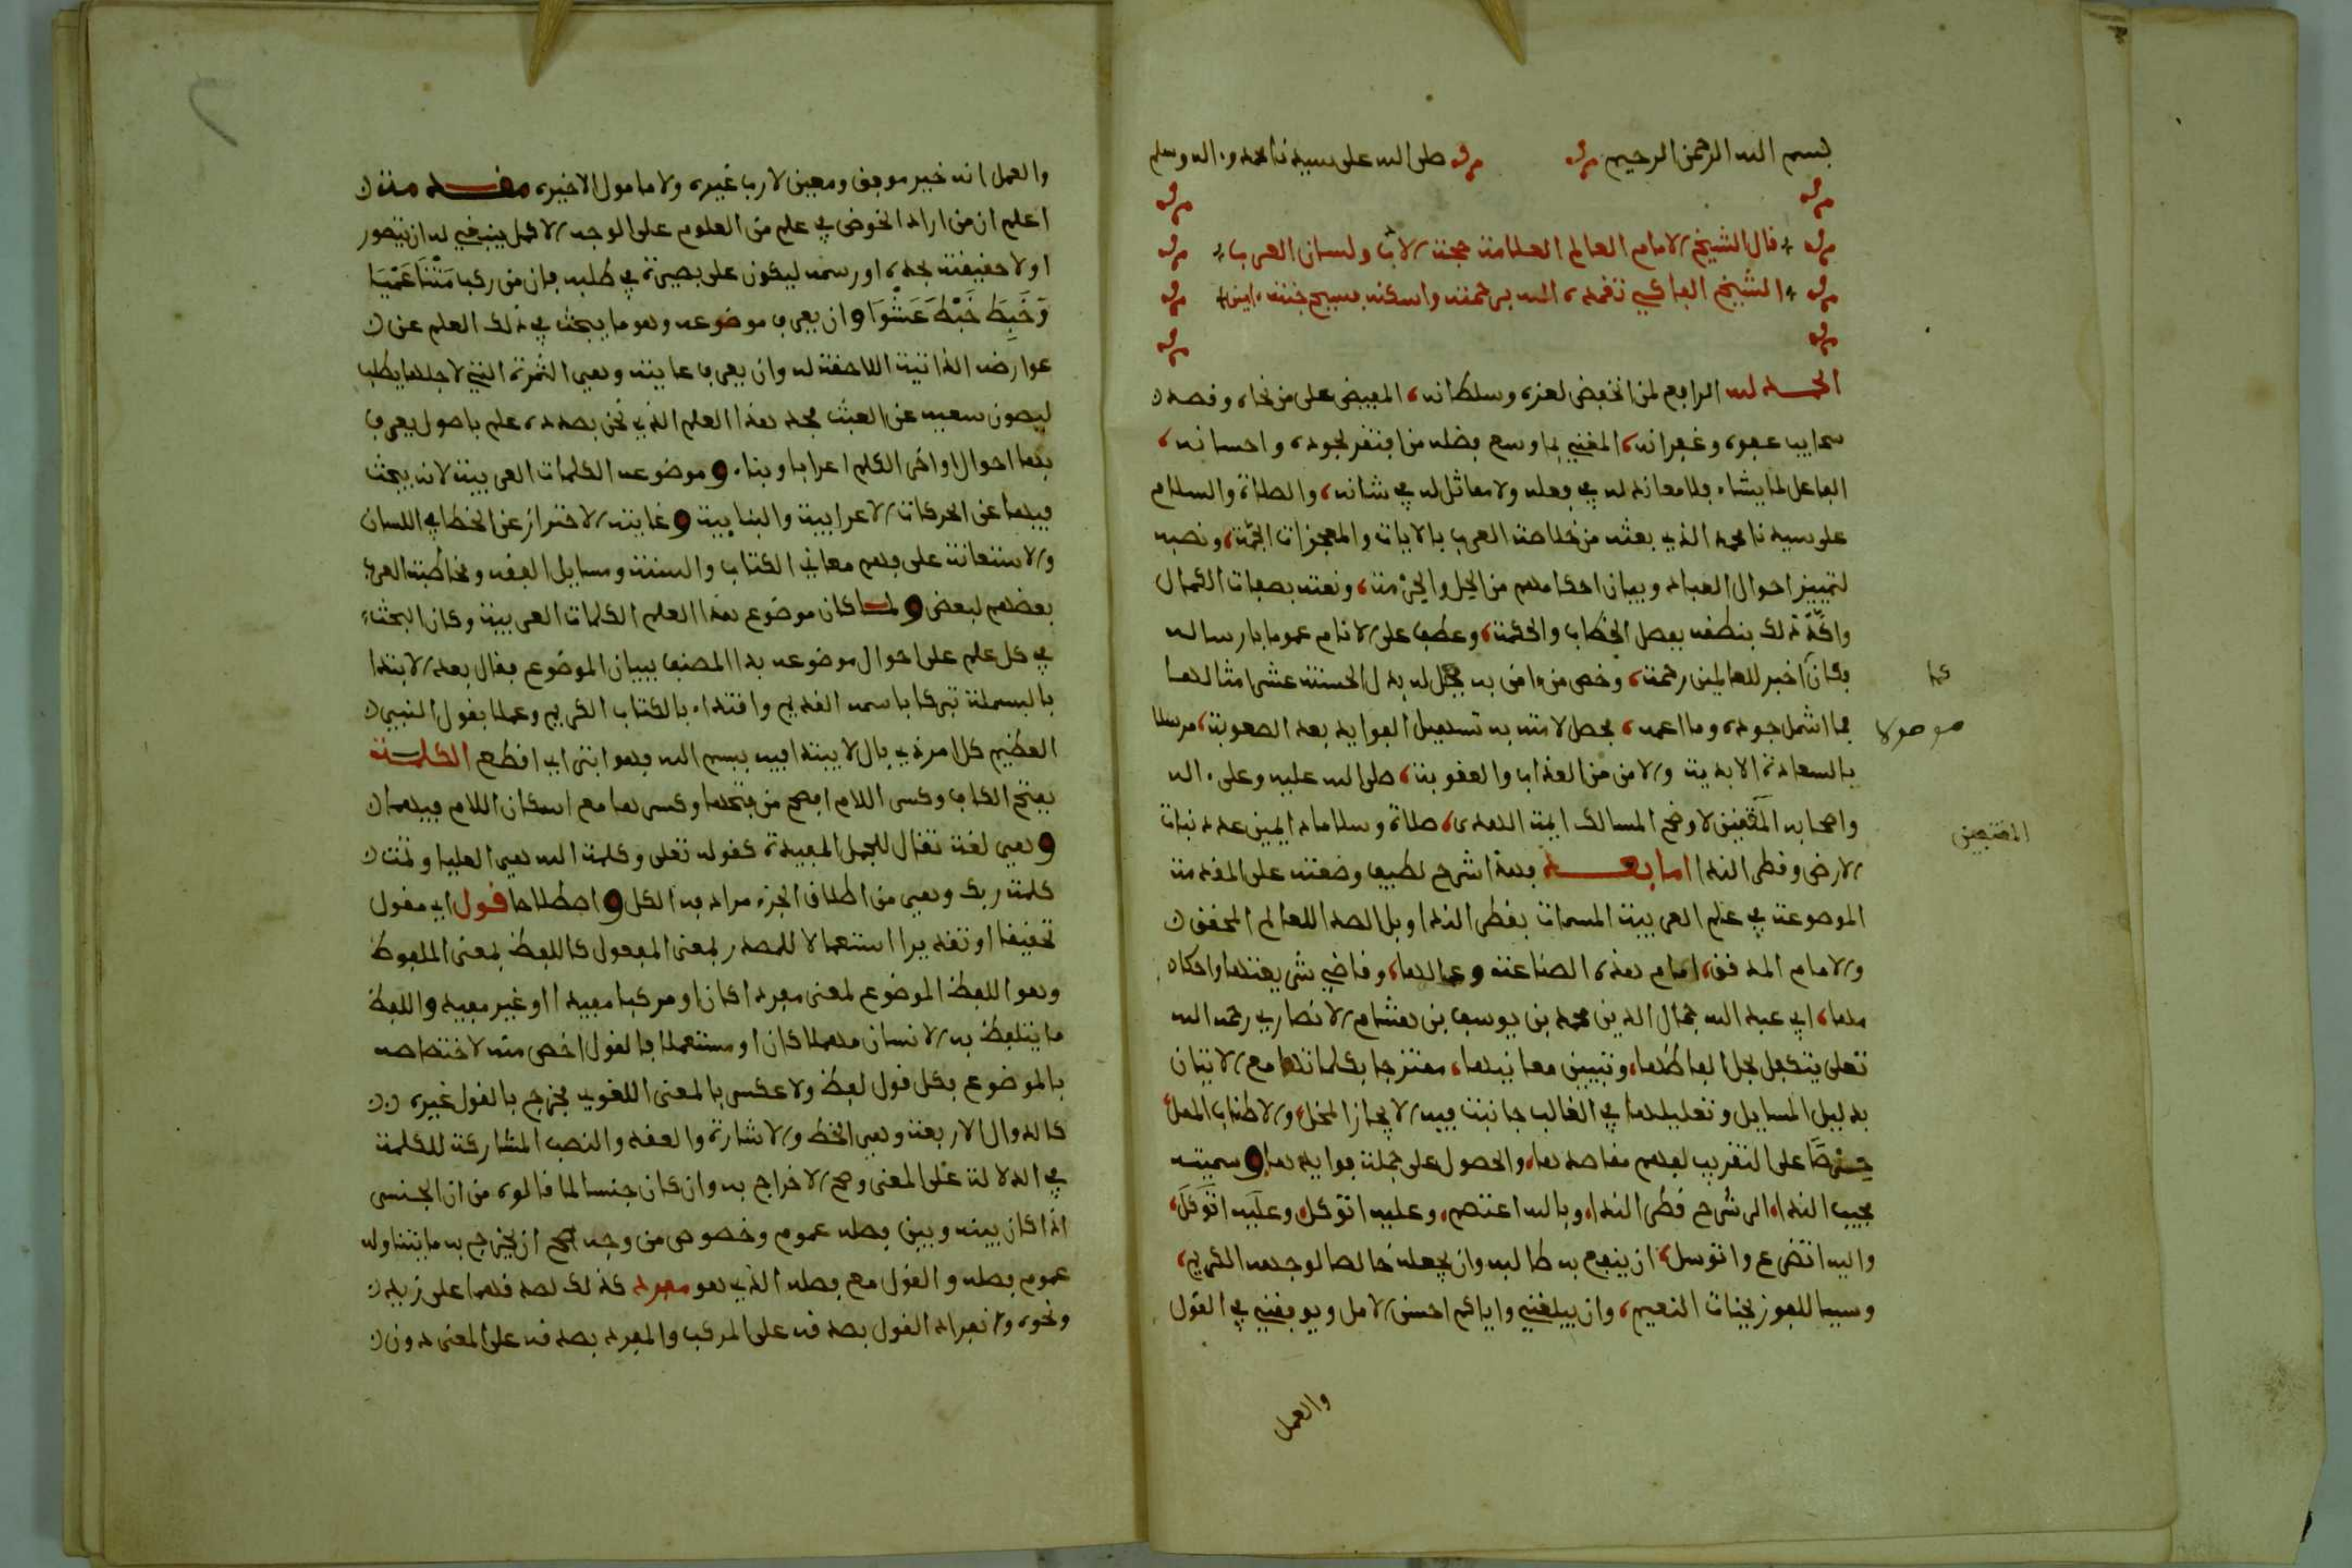 بسم الله الرحمن الرحيم صلى الله على سيدنا محمد وءاله وسلم
قال الشيخ الامام العالم العلامة حجة الادب ولسان العرب
الشيخ الفاكهي تغمده الله برحمته واسكنه بفسيح جنته ءامين
الحمد لله الرافع لمن انخفض لعزه وسلطانه، المفيض على من نحاه وقصده
سحايب عفوه وغفرانه، المغني بما وسع فضله من افتقر لجوده واحسانه،
الفاعل لما يشاء فلا معاند له في فعله ولا مماثل له في شانه، والصلاة والسلام
على سيدنا محمد الذي بعثه من خلاصة العرب بالايات والمعجزات الجمة، ونصبه
لتمييز احوال العباد وبيان احكامهم من الحل والحرمة، ونعته بصفات الكمال
واكد ذلك بنطقه بفصل الخطاب والحكمة، وعطف على الانام عموما بارساله
فكان كما اخبر للعالمين رحمة، وخص من ءامن به فجعل له بدل الحسنة عشر امثالها
فما اشمل جوده وما اعمه، فحصل لامته به تسهيل الفوايد بعد الصعوبة، مرسلا
موصولا
بالسعادة الابدية والامن من العذاب والعقوبة، صلى الله عليه وعلى ءاله
واصحابه المقتفين لاوضح المسالك ايمة الهدى، صلاة وسلاما دايمين عدد نبات
المقتفين
الارض وقطر الندا اما بعد فهذا شرح لطيف وضعته على المقدمة
الموضوعة في علم العربية المسمات بقطر الندا وبل الصدا للعالم المحقق
والامام المدقق، امام هذه الصناعة وعمالها، وقاضي شريعتها واحكا
مها، ابي عبد الله جمال الدين محمد بن يوسف بن هشام الانصاري رحمه الله
تعلى يتكفل بحل الفاظها، وتبيين معانيها، ممتزجا بكلماتها مع الاتيان
بدليل المسايل وتعليلها في الغالب جانبت فيه الايجاز المخل، والاطناب الممل
حرصا على التقريب لفهم مقاصدها، والحصول على جملة فوايدها، وسميته
مجيب الندا، الى شرح قطر الندا، وبالله اعتصم، وعليه اتوكل، وعليه اتوكل،
واليه اتضرع واتوسل، ان ينفع به طالبه وان يجعله خالصا لوجهه الكريم،
وسببا للفوز بجنات النعيم، وان يبلغني واياكم احسن الامل ويوفقني في القول
والعمل
والعمل انه خير موفق ومعين لا رب غيره ولا مامول الا خيره مقدمة
اعلم ان من اراد الخوض في علم من العلوم على الوجه الاكمل ينبغي له ان يتصور
اولا حقيقته بحده او رسمه ليكون على بصيرة في طلبه فان من ركب متن عميا
وخبط خبط عشوا وان يعرف موضوعه وهو ما يبحث في ذلك العلم عن
عوارضه الذاتية اللاحقة له وان يعرف غايته وهي الثمرة التي لاجلها يطلب
ليصون سعيه عن العبث فحد هذا العلم الذي نحن بصدده علم باصول يعرف
بها احوال اواخر الكلم اعرابا وبناء وموضوعه الكلمات العربية لانه يبحث
فيها عن الحركات الاعرابية والبنايية وغايته الاحتراز عن الخطا في اللسان
والاستعانة على فهم معاني الكتاب والسنة ومسايل الفقه ومخاطبة العرب
بعضهم لبعض ولما كان موضوع هذا العلم الكلمات العربية وكان البحث
في كل علم على احوال موضوعه بدا المصنف ببيان الموضوع فقال بعد الابتدا
بالبسملة تبركا باسمه القديم واقتداء بالكتاب الكريم وعملا بقول النبي
العظيم كل امر ذي بال لا يبتدا فيه ببسم الله فهو ابتر اي اقطع الكلمة
بفتح الكاف وكسر اللام افصح من فتحها وكسرها مع اسكان اللام فيهما
وهي لغة تقال للجمل المفيدة كقوله تعلى وكلمة الله هي العليا وتمت
كلمة ربك وهي من اطلاق الجزء مراد به الكل واصطلاحا قول اي مقول
تحقيقا او تقديرا استعمالا للمصدر بمعنى المفعول كاللفظ بمعنى الملفوظ
وهو اللفظ الموضوع لمعنى مفردا كان او مركبا مفيدا او غير مفيد واللفظ
ما يتلفظ به الانسان مهملا كان او مستعملا فالقول اخص منه لاختصاصه
بالموضوع فكل قول لفظ ولا عكس بالمعنى اللغوي فخرج بالقول غيره
كالدوال الاربعة وهي الخط والاشارة والعقد والنصب المشاركة للكلمة
في الدلالة على المعنى وصح الاخراج به وان كان جنسا لما قالوه من ان الجنس
اذا كان بينه وبين فصله عموم وخصوص من وجه صح ان يخرج به ما يتناوله
عموم فصله والقول مع فصله الذي هو مفرد كذلك لصدقهما على زيد
ونحوه وانفراد القول بصدقه على المركب والمفرد بصدقه على المعنى دون